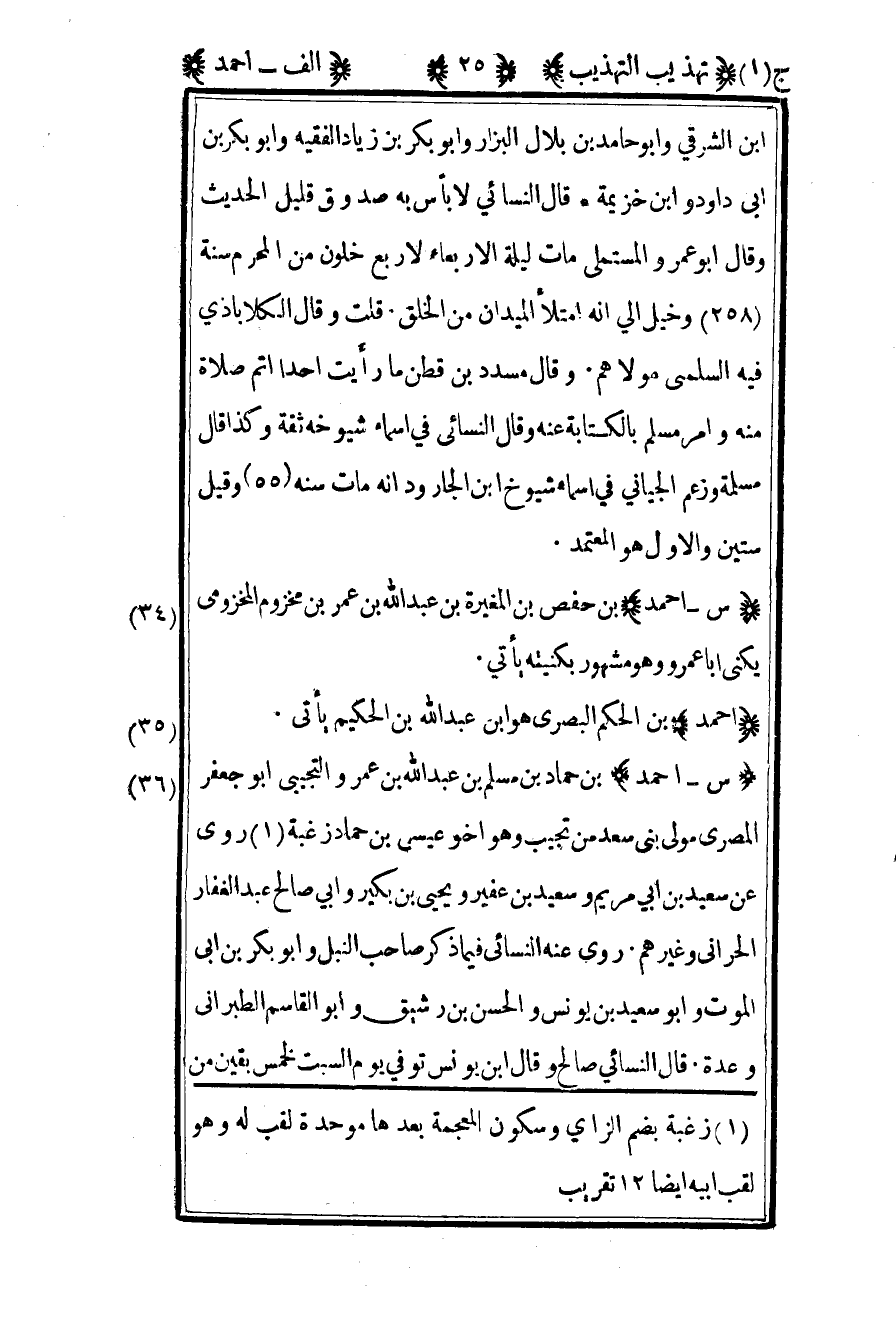 ج(١) ﴿ تهذيب التهذيب ﴾ ﴿ ٢٥ ﴾ ﴿ الف ـ احمد ﴾
ابن الشرقي وابوحامدبن بلال البزار وابوبكر بن زيادالفقيه وابوبكربن
ابى داودو ابن خزيمة * قال النسائي لابأس به صدوق قليل الحديث
وقال ابوعمرو المستملى مات ليلة الاربعاء لاربع خلون من المحرم سنة
(٢٥٨) وخيل الي انه امتلأ الميدان من الخلق · قلت و قال الكلاباذي
فيه السلمى مولاهم · و قال مسدد بن قطن ما رأيت احدا اتم صلاة
منه و امر مسلم بالكتابة عنه وقال النسائى في اسماء شيوخه ثقة وكذا قال
مسلمة وزعم الجياني في اسماء شيوخ ابن الجارود انه مات سنه (٥٥) وقيل
ستين والاول هو المعتمد ·
﴿ س ـ احمد ﴾ بن حفص بن المغيرة بن عبدالله بن عمر بن مخزوم المخزومى (٣٤)
يكنى اباعمرو وهو مشهور بكنيته يأتي ·
﴿ احمد ﴾ بن الحكم البصرى هو ابن عبدالله بن الحكيم يأتى · (٣٥)
﴿ س ـ احمد ﴾ بن حماد بن مسلم بن عبدالله بن عمرو التجيبى ابو جعفر (٣٦)
المصرى مولى بنى سعد من تجيب وهو اخو عيسى بن حماد زغبة (١) روى
عن سعيد بن ابي مريم و سعيد بن عفير و يحيى بن بكير و ابي صالح عبدالغفار
الحرانى وغيرهم · روى عنه النسائى فيما ذكر صاحب النبل و ابوبكر بن ابى
الموت و ابو سعيد بن يونس و الحسن بن رشيق و ابو القاسم الطبرانى
وعدة · قال النسائي صالح وقال ابن يونس توفي يوم السبت لخمس بقين من
(١) زغبة بضم الزاي وسكون المعجمة بعدها موحدة لقب له وهو
لقب ابيه ايضا ١٢ تقريب